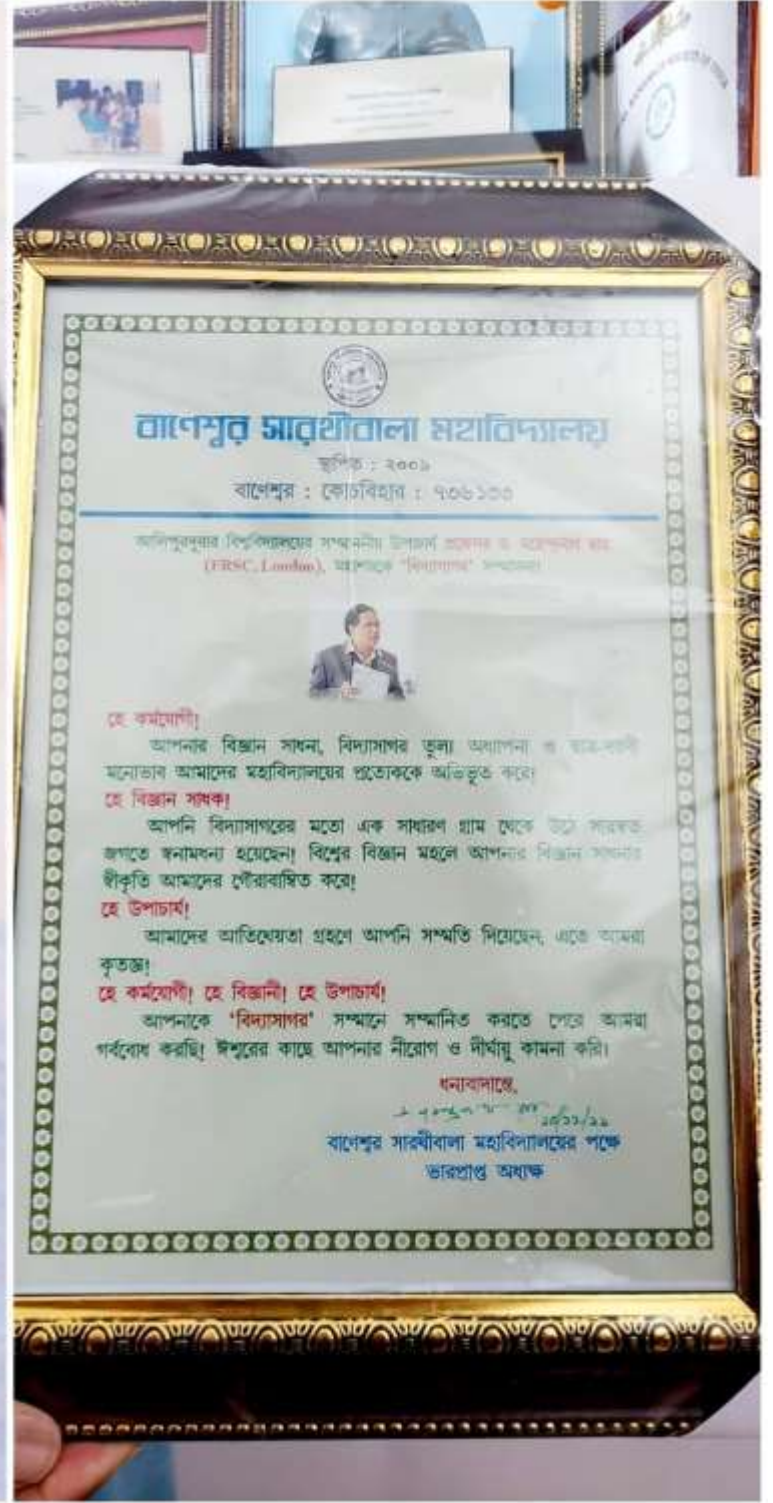 বাণেশ্বর সারথীবালা মহাবিদ্যালয়
স্থাপিত : ২০০৯
বাণেশ্বর : কোচবিহার : ৭৩৬১৩৩
আলিপুরদুয়ার বিশ্ববিদ্যালয়ের সম্মাননীয় উপাচার্য প্রফেসর ড.
(FRSC, London), মহাশয়কে 'বিদ্যাসাগর' সম্মাননা
হে কর্মযোগী!
আপনার বিজ্ঞান সাধনা, বিদ্যাসাগর তুল্য অধ্যাপনা ও ছাত্র-দরদী
মনোভাব আমাদের মহাবিদ্যালয়ের প্রত্যেককে অভিভূত করে!
হে বিজ্ঞান সাধক!
আপনি বিদ্যাসাগরের মতো এক সাধারণ গ্রাম থেকে উঠে সারস্বত
জগতে স্বনামধন্য হয়েছেন! বিশ্বের বিজ্ঞান মহলে আপনার বিজ্ঞান সাধনার
স্বীকৃতি আমাদের গৌরাবান্বিত করে!
হে উপাচার্য!
আমাদের আতিথেয়তা গ্রহণে আপনি সম্মতি দিয়েছেন, এতে আমরা
কৃতজ্ঞ!
হে কর্মযোগী! হে বিজ্ঞানী! হে উপাচার্য!
আপনাকে 'বিদ্যাসাগর' সম্মানে সম্মানিত করতে পেরে আমরা
গর্ববোধ করছি! ঈশ্বরের কাছে আপনার নীরোগ ও দীর্ঘায়ু কামনা করি।
ধন্যবাদান্তে,
বাণেশ্বর সারথীবালা মহাবিদ্যালয়ের পক্ষে
ভারপ্রাপ্ত অধ্যক্ষ